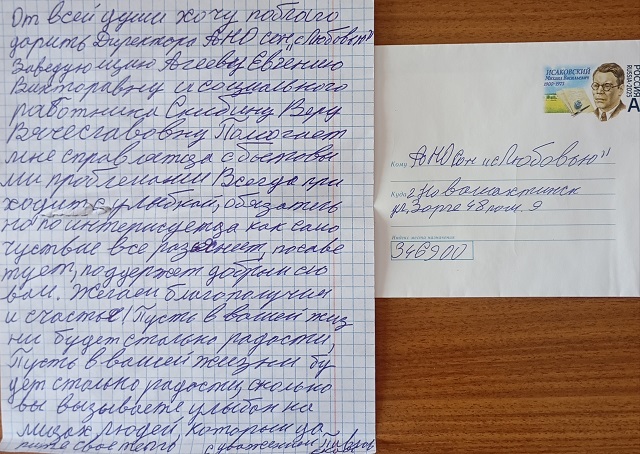 От всей души хочу поблаго
дарить Директора АНО сон "с Любовью"
Заведующию Агееву Евгению
Викторавну и социального
работника Скибину Веру
Вячеславовну Помогает
мне справлятца с бытовы
ми проблемами Всегда при
ходит с улыбкай, обязатель
но поинтерисуетца как само
чуствие все разяснеет, посове
тует, поддержет добрым сло
вом. Желаем благополучия
и счастье! Пусть в вашей жиз
ни будет столько радости,
Пусть в вашей жизни бу
дет столько радости, сколько
вы вызываете улыбок на
лицах людей, которым да
рите свое тепло с уважением
ИСАКОВСКИЙ
Михаил Васильевич
1900-1973
РОССИЯ
RUSSIA·2025
А
Кому АНО сон "с Любовью"
Куда г Новошахтинск
ул. Зорге 48 пом. 9
Индекс места назначения
346900